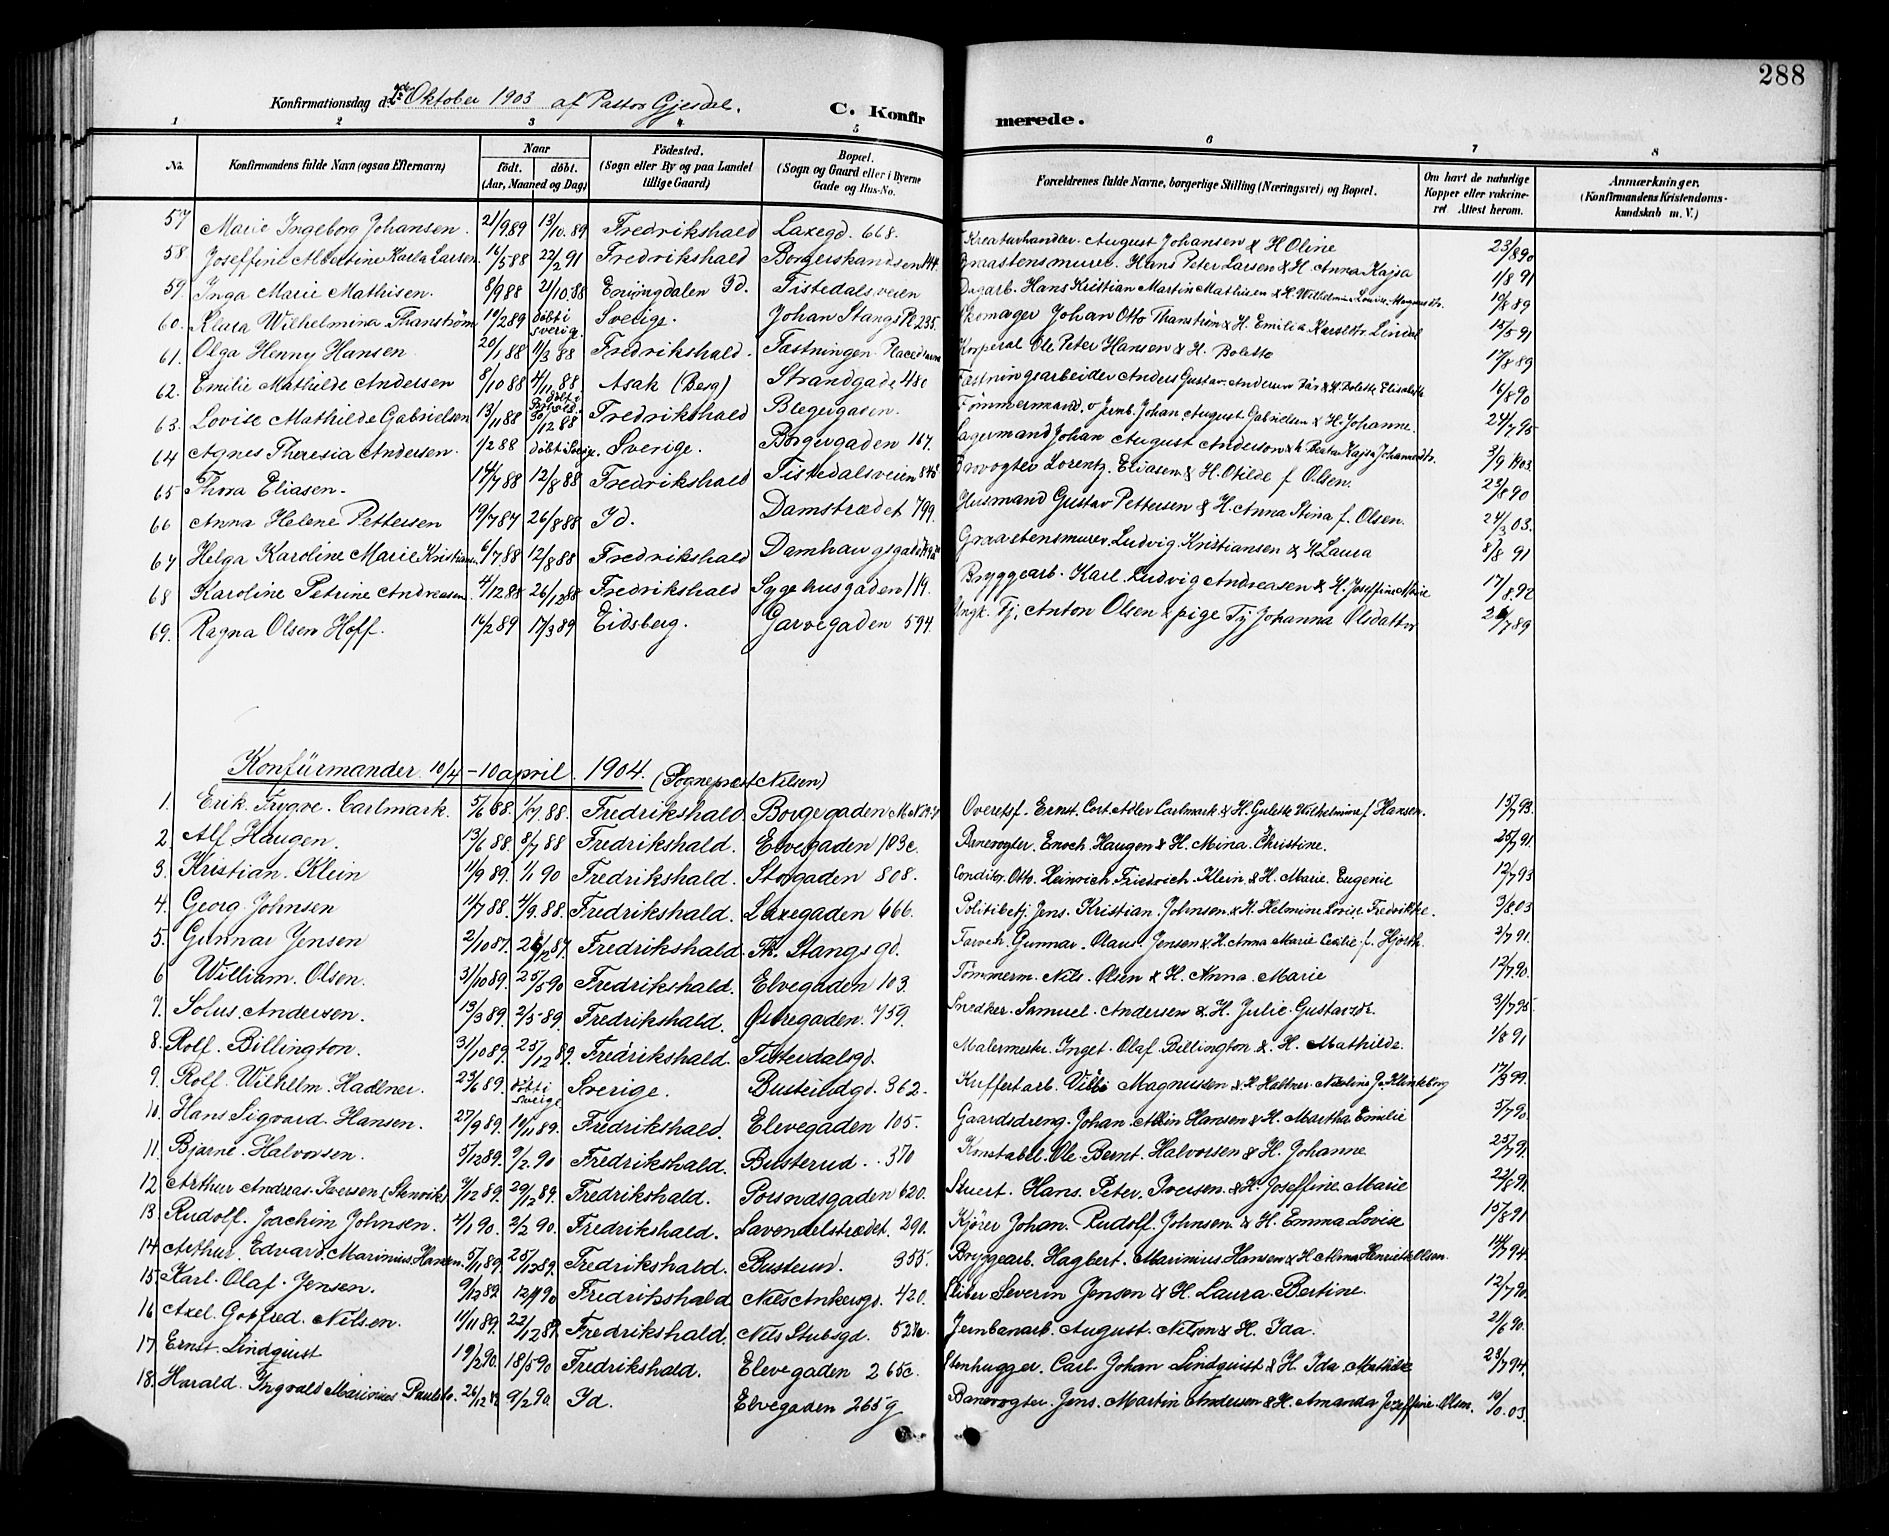 288
Konfirmationsdag d. 4de Oktober 1903 af Pastor Gjesdal. C. Konfirmerede.
1 2 3 4 5 6 7 8
No. Konfirmandens fulde Navn (ogsaa Efternavn) Naar født. døbt. (Aar, Maaned og Dag) Fødested. (Sogn eller By og paa Landet tillige Gaard) Bopæl. (Sogn og Gaard eller i Byerne Gade og Hus-No. Forældrenes fulde Navne, borgerlige Stilling (Næringsvei) og Bopæl. Om havt de naturlige Kopper eller vakcineret Attest herom. Anmærkninger. (Konfirmandens Kristendomskundskab m. V.)
57 Marie Ingeborg Johansen. 21/9 89 13/10.89 Fredrikshald Laxegd. 668. Kreaturhandler. August Johansen & H Oline 23/8 90
58. Joseffine Albertine Karla Larsen. 16/5 88 22/2 91 Fredrikshald Borgerskandsen 144. Graastensmurer. Hans Peter Larsen & H. Anna Kajsa 1/8 91
59. Inga Marie Mathisen. 8/9 88 21/10.88 Enningdalen Id. Tistedalsveien Dagarb. Hans Kristian Martin Mathisen & H. Wilhelmine Lovise 19/8 89
60. Klara Wilhelmina Thanström 19/2 89 døbt i Sverige. Sverige. Johan Stangs Pl 235. Skomager Johan Otto Thanström & H. Emilia Karolstr. Lindal 15/5 91
61. Olga Henny Hansen 20/1 88 11/3 88 Fredrikshald. Fastningen Korperal Ole Peter Hansen & H. Bolette 17/8 89
62. Emilie Mathilde Andersen 8/10 88 4/11 88 Asak (Berg) Strandgade 48c Fæstningsarbeider Anders Gustav Andersen & H. Bolette Elisabeth 16/8 90
63. Lovise Mathilde Gabrielsen 13/11 88 30/12 88 Fredrikshald Blegergaden. Tømmermand. Johan August Gabrielsen & H. Johanne. 24/7 95
64 Agnes Theresia Andersen. 1/2 88 døbt Sverige. Sverige. Borgergaden 167. Lagermand Johan August Anderson & h. Beata Kajsa 3/9 1903.
65. Thora Eliasen. 14/7 88 12/8 88 Fredrikshald Tistedalsveien 848 Brovogter Lorentz. Eliasen & H. Otilde f Olsen. 23/8 90
66 Anna Helene Pettersen 19/7 87 26/8 88 Id. Damstrædet 799. Husmand Gustav Pettersen & H. Anna Stina f. Olsen. 24/3 03.
67 Helga Karoline Marie Kristiansen 6/7 88 12/8 88 Fredrikshald Damhaugsgaden Graastensmurer. Ludvig Kristiansen & H Laura 8/8 91
68 Karoline Petrine Andreasen. 4/12 88 26/12 88 Fredrikshald Sygehusgaden 119. Bryggearb. Karl Ludvig Andreasen & H. Joseffine Marie 17/8 92
69. Ragna Olsen Hoff. 16/2 89 17/3 89 Eidsberg. Garvegaden 594. Ungk. Tj. Anton Olsen & pige Tj Johanna Olsdatter 26/7 89
Konfürmander 10/4 – 10 april 1904. (Sogneprest Nilsen)
1. Erik Trygve. Carlmark. 5/6 88. 1/7 88 Fredrikshald. Borgegaden Overetsf. Ernst. Cort Adler Carlmark & H. Gulette Wilhelmine f Hansen. 15/7 93.
2. Alf Haugen. 13/6 88. 8/7 88 Fredrikshald. Elvegaden 183c. Banevogter. Enoch. Haugen & H. Mina. Christine. 25/7 91.
3. Kristian. Klein 11/9 89. 1/1 90 Fredrikshald. Storgaden 808. Conditor. Otto. Heinrich. Friedrich. Klein. & H. Marie. Eugenie 12/7 93
4. Georg. Johnsen 11/7 88. 4/9. 88 Fredrikshald. Laxegaden 666. Politibetj. Jens. Kristian. Johnsen. & H. Helmine. Lovise. Fredrikke. 3/8.03
5. Gunnar Jensen 2/10 87. 26/12 87. Fredrikshald. Th. Stangs gd. Farveh. Gunnar. Olaus. Jensen & H. Anna Marie Cecilie. f. Hjorth. 3/7 91.
6 William. Olsen. 31/10 89. 25/5 90 Fredrikshald. Elvegaden 103. Tømmerm. Nils. Olsen & H. Anna. Marie 12/7 90.
7. Solus. Andersen. 13/3 89. 2/5 89. Fredrikshald. Østregaden. 759. Snedker. Samuel. Andersen & H. Julie. Gustavsdr. 31/7 95.
8. Rolf. Billington. 31/10 89. 25/12 89. Fredrikshald. Tistedalsgd. Malermester. Inget. Olaf. Billington & H. Mathilde. 1/8 91
9. Rolf. Wilhelm. Hadlner. 23/6 89. døbt i Sverige Sverige. Busterudgd. 362. Kuffertarb. Magnussen & H Hallner. 17/3 99.
10. Hans Sigvard. Hansen. 27/9 89. 19/11 89. Fredrikshald. Elevegaden 105. Gaardsdreng. Johan. Hansen & H. Martha. Emilie 5/7 90.
11. Bjarne. Halvorsen. 5/12 89. 9/2. 90 Fredrikshald. Busterud. . 370 Konstabel. Ole. Bernt. Halvorsen & H. Johanne 25/7 91.
12. Arthur Andreas. Iversen (Stenvik) 7/12 89. 29/12 89. Fredrikshald. Porsnæsgaden 620. Stuert. Hans. Peter. Iversen & H. Joseffine. Marie 22/8 91.
13. Rudolf. Joachim Johnsen. 4/1 90. 2/2 90. Fredrikshald. Lavendelstrædet. 290. Kjører Johan. Rudolf. Johnsen. & H. Emma Lovise 15/8 91
14. Arthur. Edvard. Marinius Hansen. 5/11 89. 25/12 89. Fredrikshald. Busterud. 355. Bryggearb. Hagbert. Marinius Hansen & H. Alma Henriette Olsen. 14/7 94.
15. Karl. Olaf. Jensen. 9/12 89 12/1 90 Fredrikshald. Nils Ankersgd. 420. Sliber Severin Jensen & H. Laura. Bertine. 12/7 90.
16. Axel. Gotfred. Nilsen. 11/11 89. 22/12 89 Fredrikshald. Nils Stubsgd. 527c. Jernbanarb. August. Nilsen & H. Ida. 21/6 90.
17. Ernst. Lindquist 19/2 90. 18/5 90 Fredrikshald. Elevegaden 265c. Stenhugger. Carl. Johan Lindquist & H. Ida. Mathilde 23/7 94.
18. Harald. Ingvald Marinius 26/12 89 9/2 90. Id. Elvegaden 265g Banevogter. Jens. Martin Andersen & H. Amanda Joseffine. Olsen.